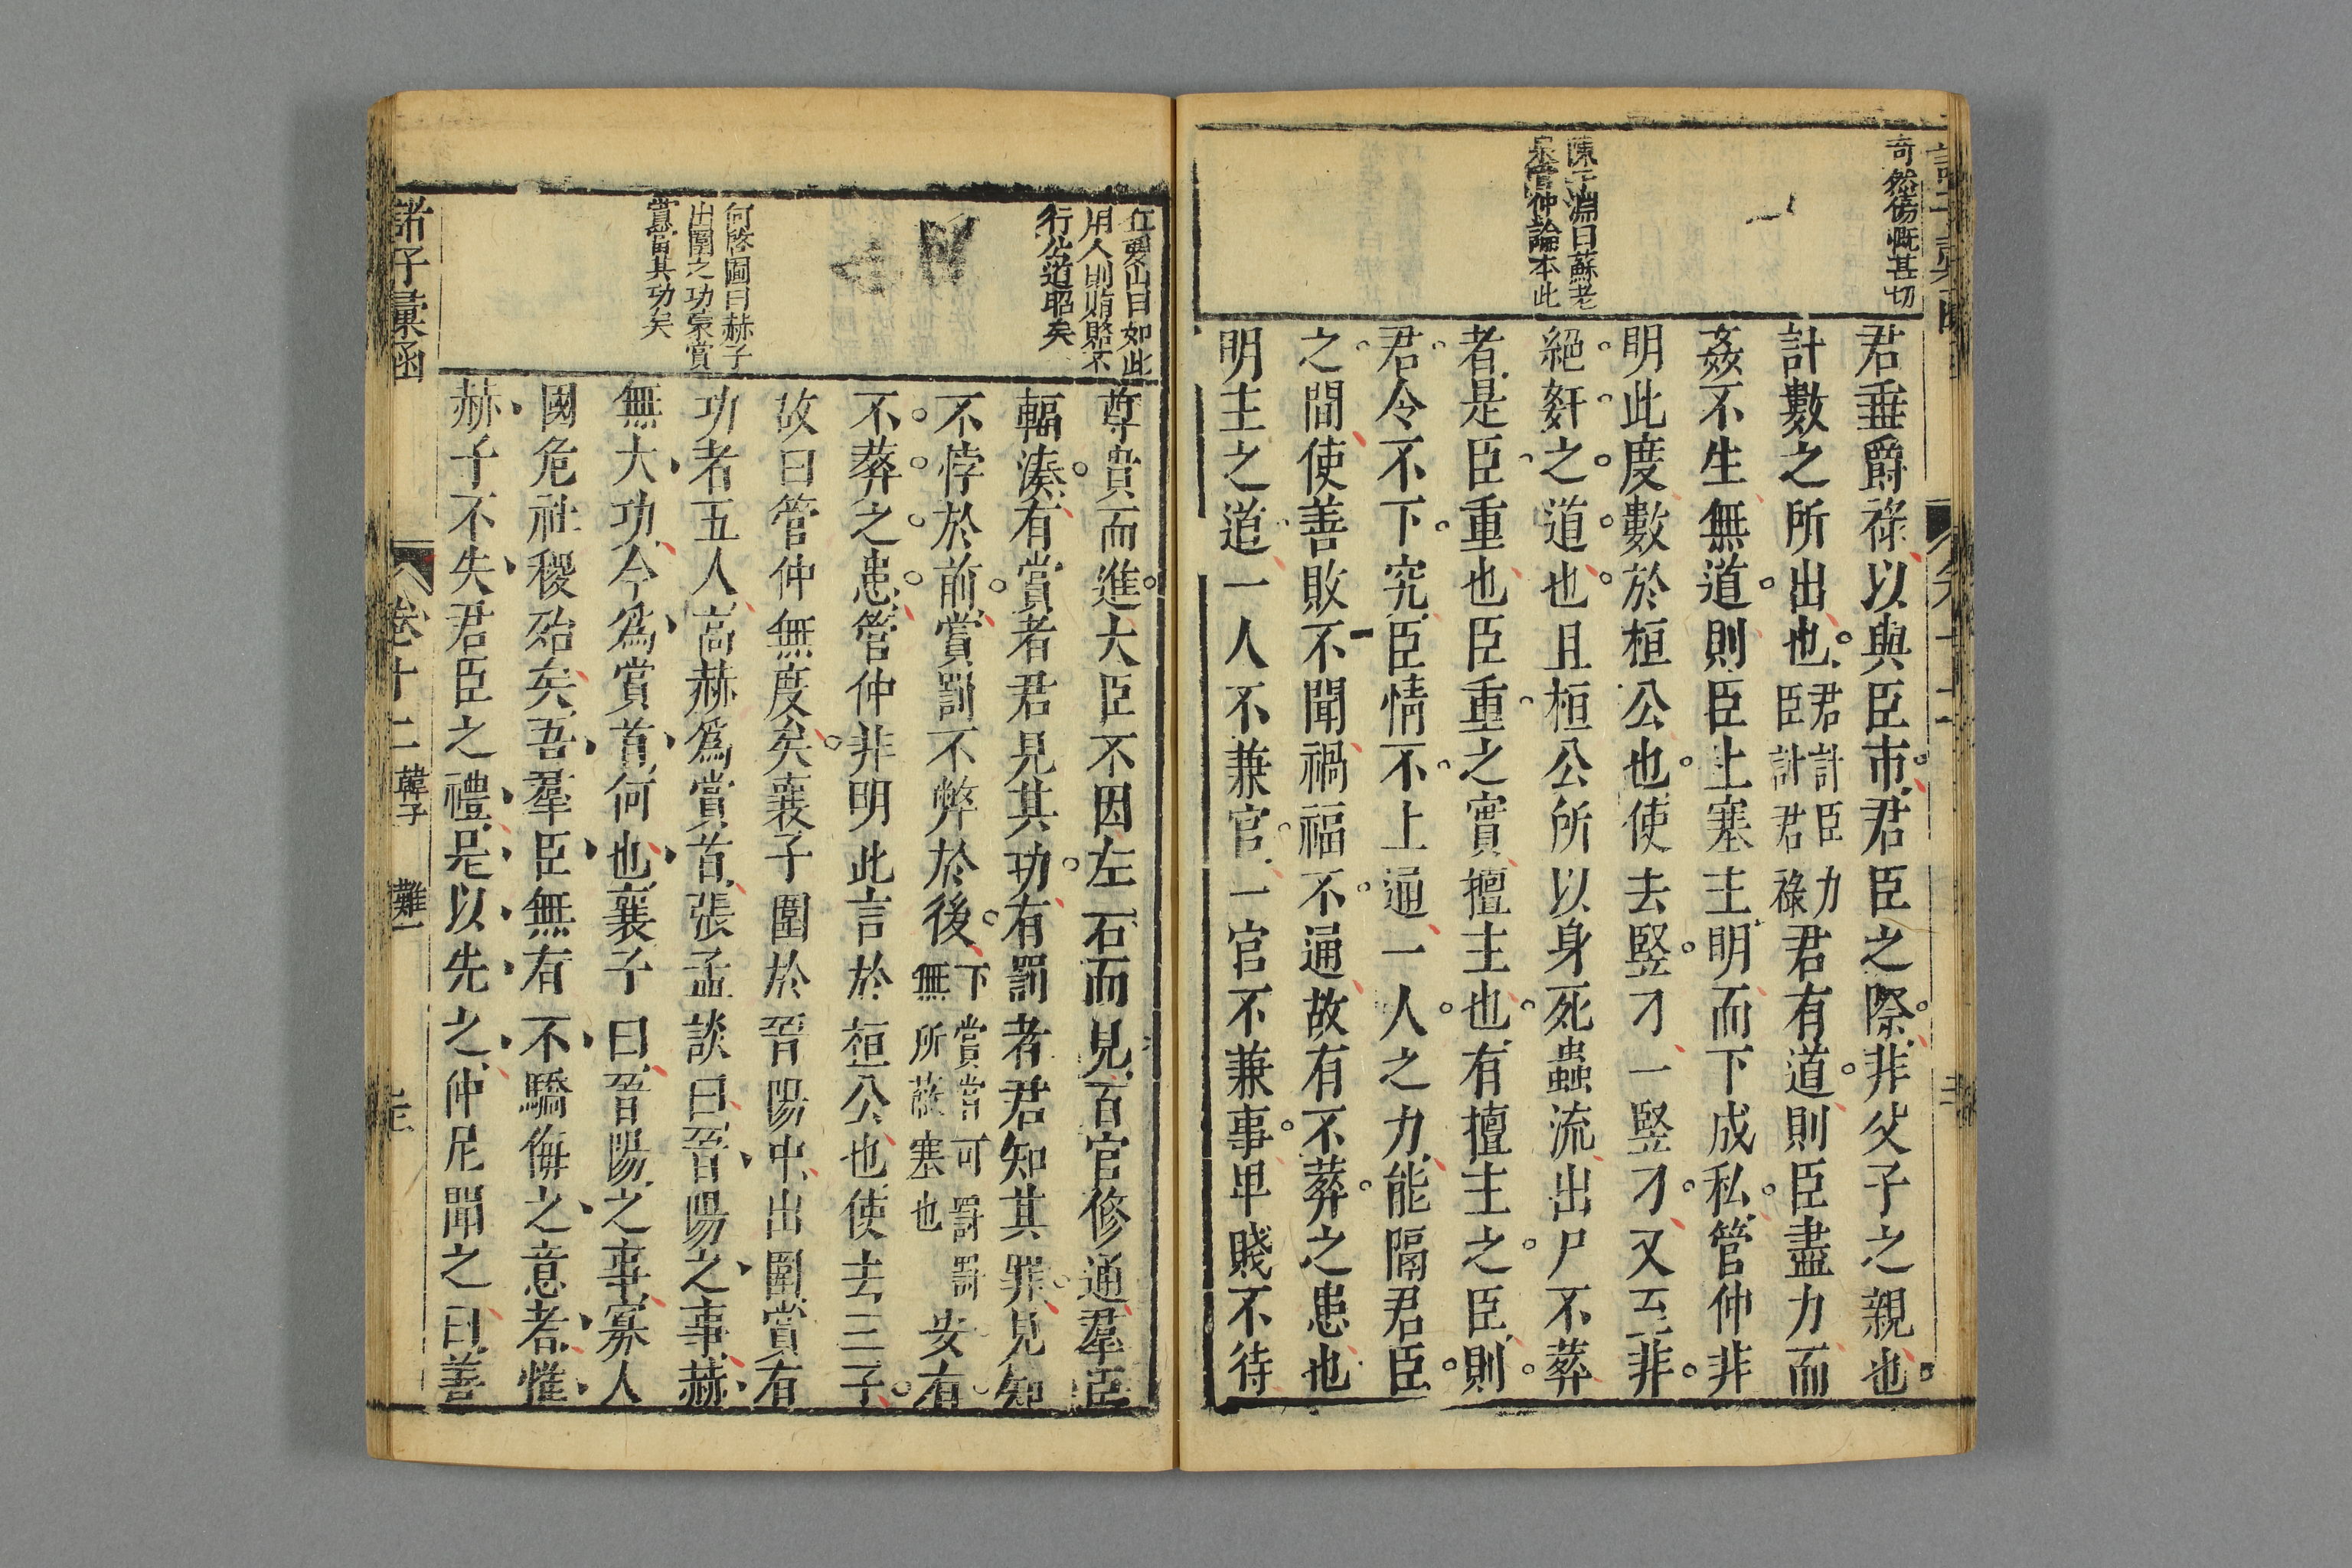 奇然傷慨甚切
陳子淵曰蘇老
泉管仲論本此
君垂爵祿以與臣市君臣之際非父子之親也
計數之所出也君計臣力臣計君祿君有道則臣盡力而
姦不生無道則臣上塞主明而下成私管仲非
明此度數於桓公也使去竪刁一竪刁又至非
絕姧之道也且桓公所以身死蟲流出尸不葬
者是臣重也臣重之實擅主也有擅主之臣則
君令不下究臣情不上通一人之力能隔君臣
之間使善敗不聞禍福不通故有不葬之患也
明主之道一人不兼官一官不兼事卑賤不待
山曰如此
用人則賄賂不
行公道昭矣
何啓圖曰赫子
出圍之功蒙賞
賞當其功矣
尊貴而進大臣不因左右而見百官修通羣臣
輻湊有賞者君見其功有罰者君知其罪見知
不悖於前賞罰不弊於後下賞當可罰罰無所蔽塞也安有
不葬之患管仲非明此言於桓公也使去三子
故曰管仲無度矣襄子圍於晉陽中出圍賞有
功者五人高赫爲賞首張孟談曰晉陽之事赫
無大功今爲賞首何也襄子曰晉陽之事寡人
國危社稷殆矣吾羣臣無有不驕侮之意者惟
赫子不失君臣之禮是以先之仲尼聞之曰善
諸子彙函
卷十二
韓子
難一